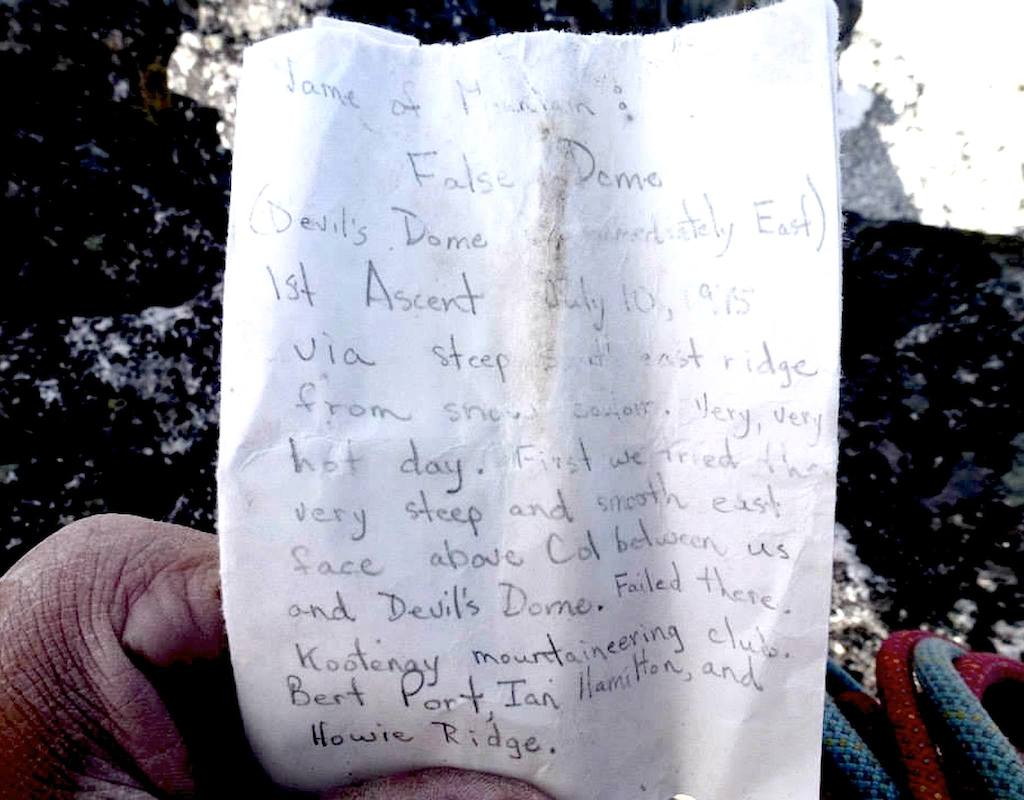 Name of Mountain:
False Dome
(Devil's Dome immediately East)
1st Ascent July 10, 1975
via steep east ridge
from snow Very, very
hot day. First we tried the
very steep and smooth east
face above Col between us
and Devil's Dome. Failed there.
Kootenay mountaineering club.
Bert Port, Ian Hamilton, and
Howie Ridge.